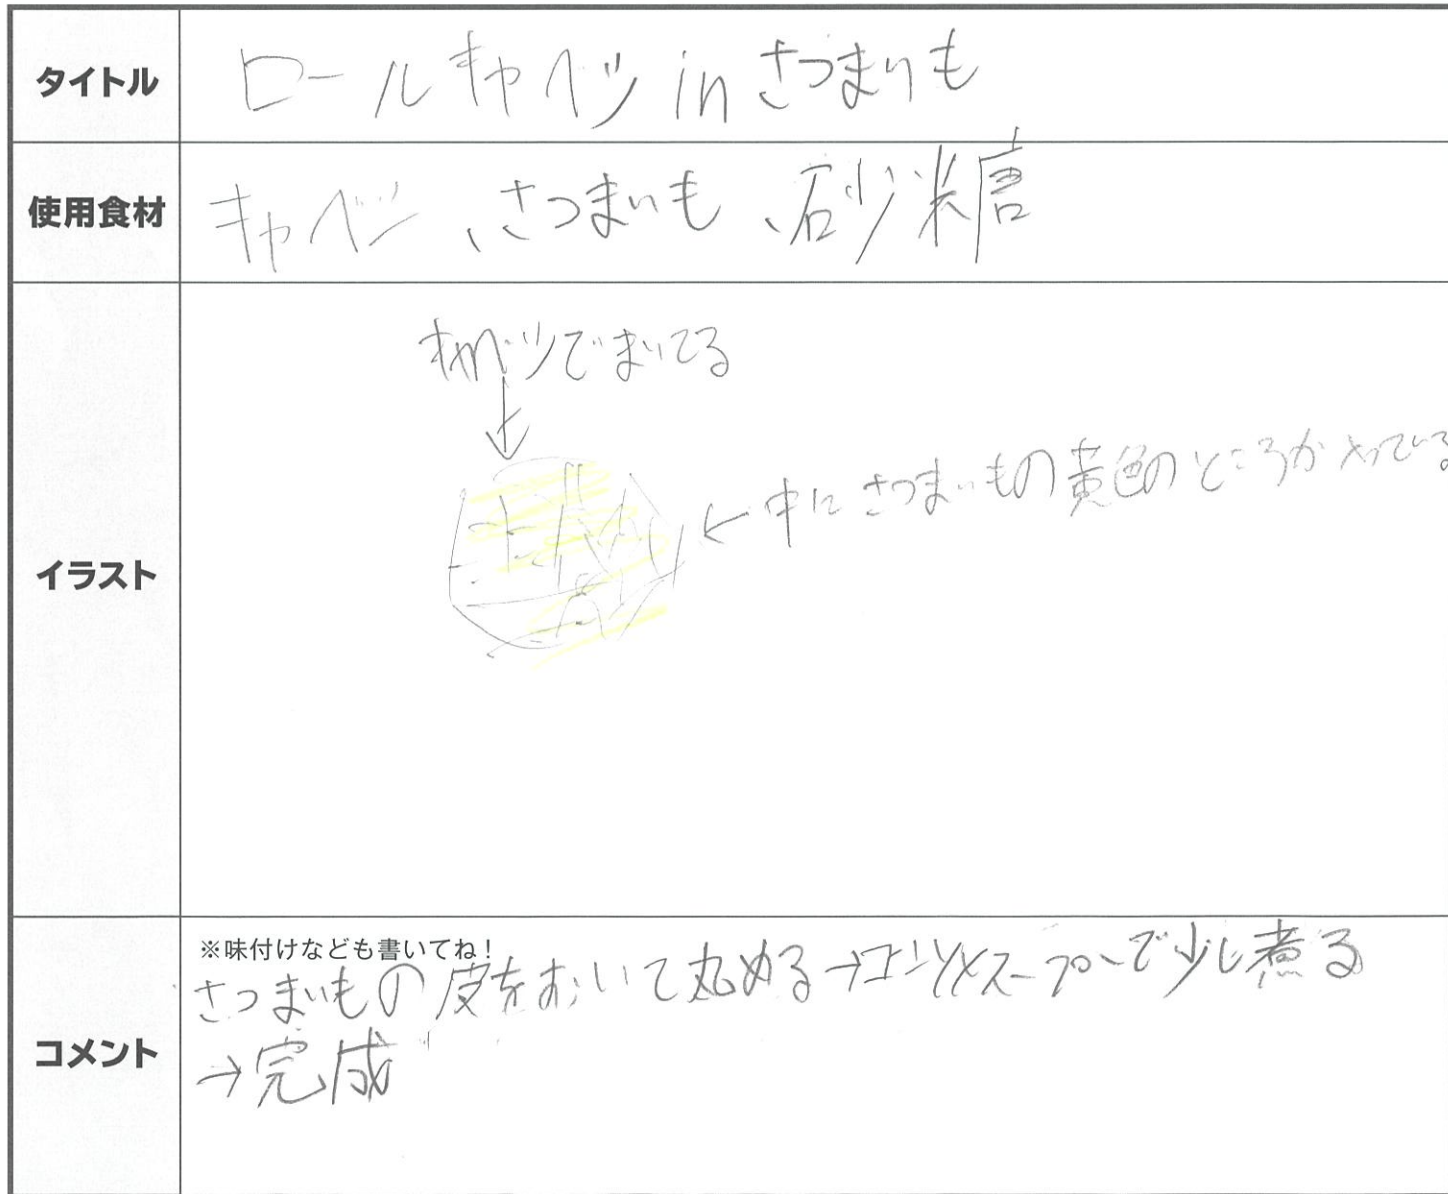 タイトル
ロールキャベツinさつまいも
使用食材
キャベツ、さつまいも、砂糖
イラスト
キャベツでまいてる
↓
←中にさつまいもの黄色のところが入っている
コメント
※味付けなども書いてね!
さつまいもの皮をおいて丸める→コンソメスープで少し煮る
→完成